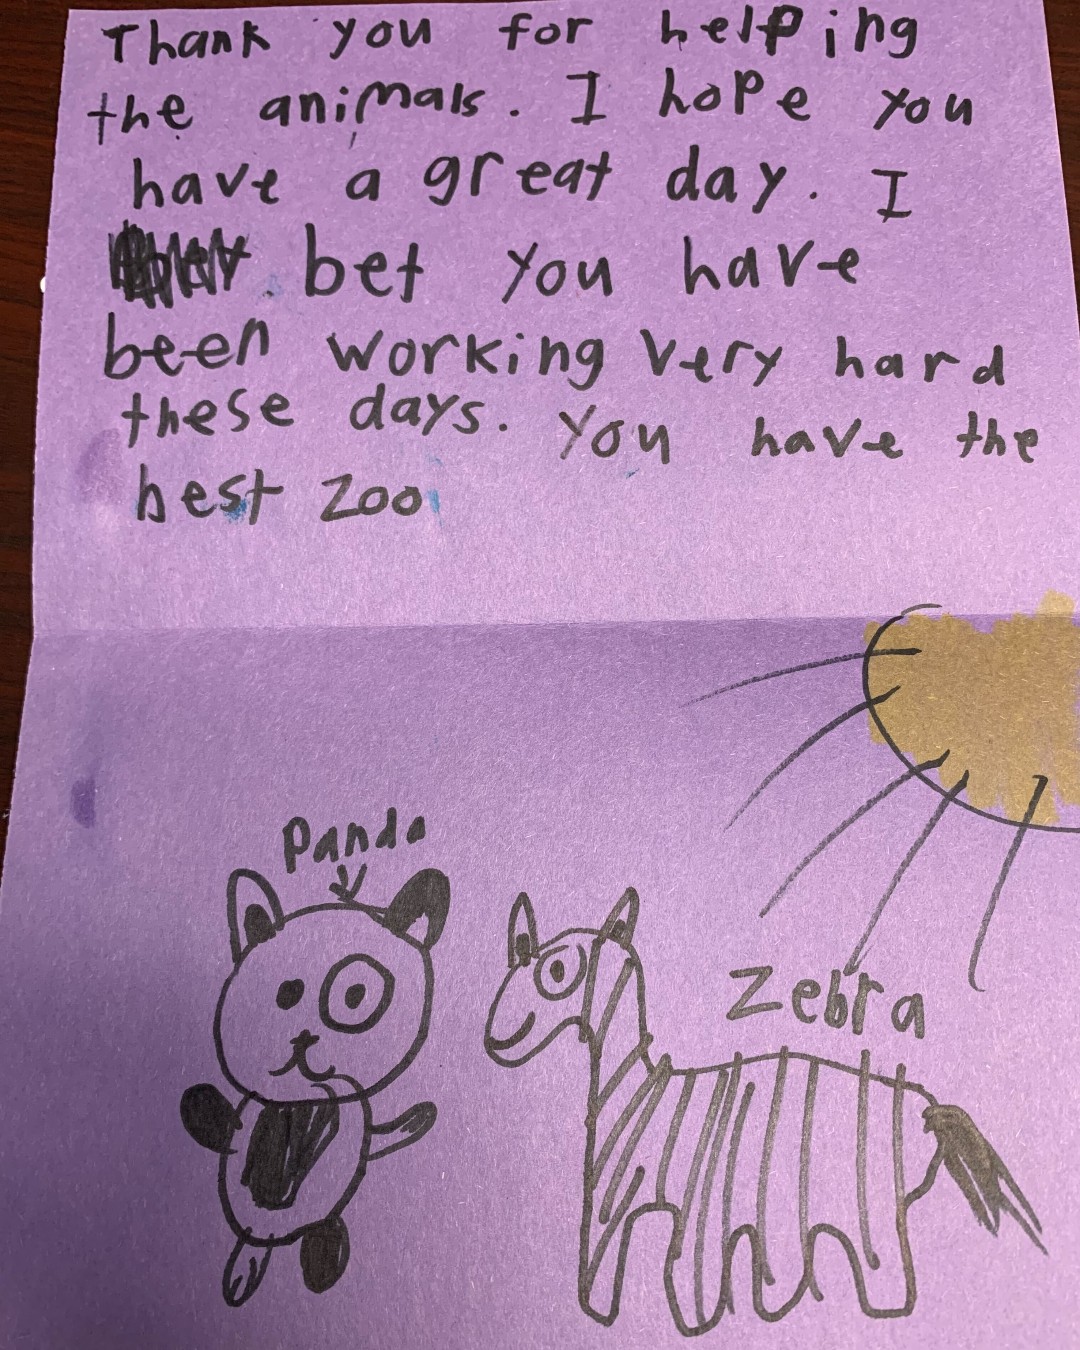 Thank you for helping
the animals. I hope you
have a great day. I
bet you have
been working very hard
these days. You have the
best zoo
Panda
Zebra